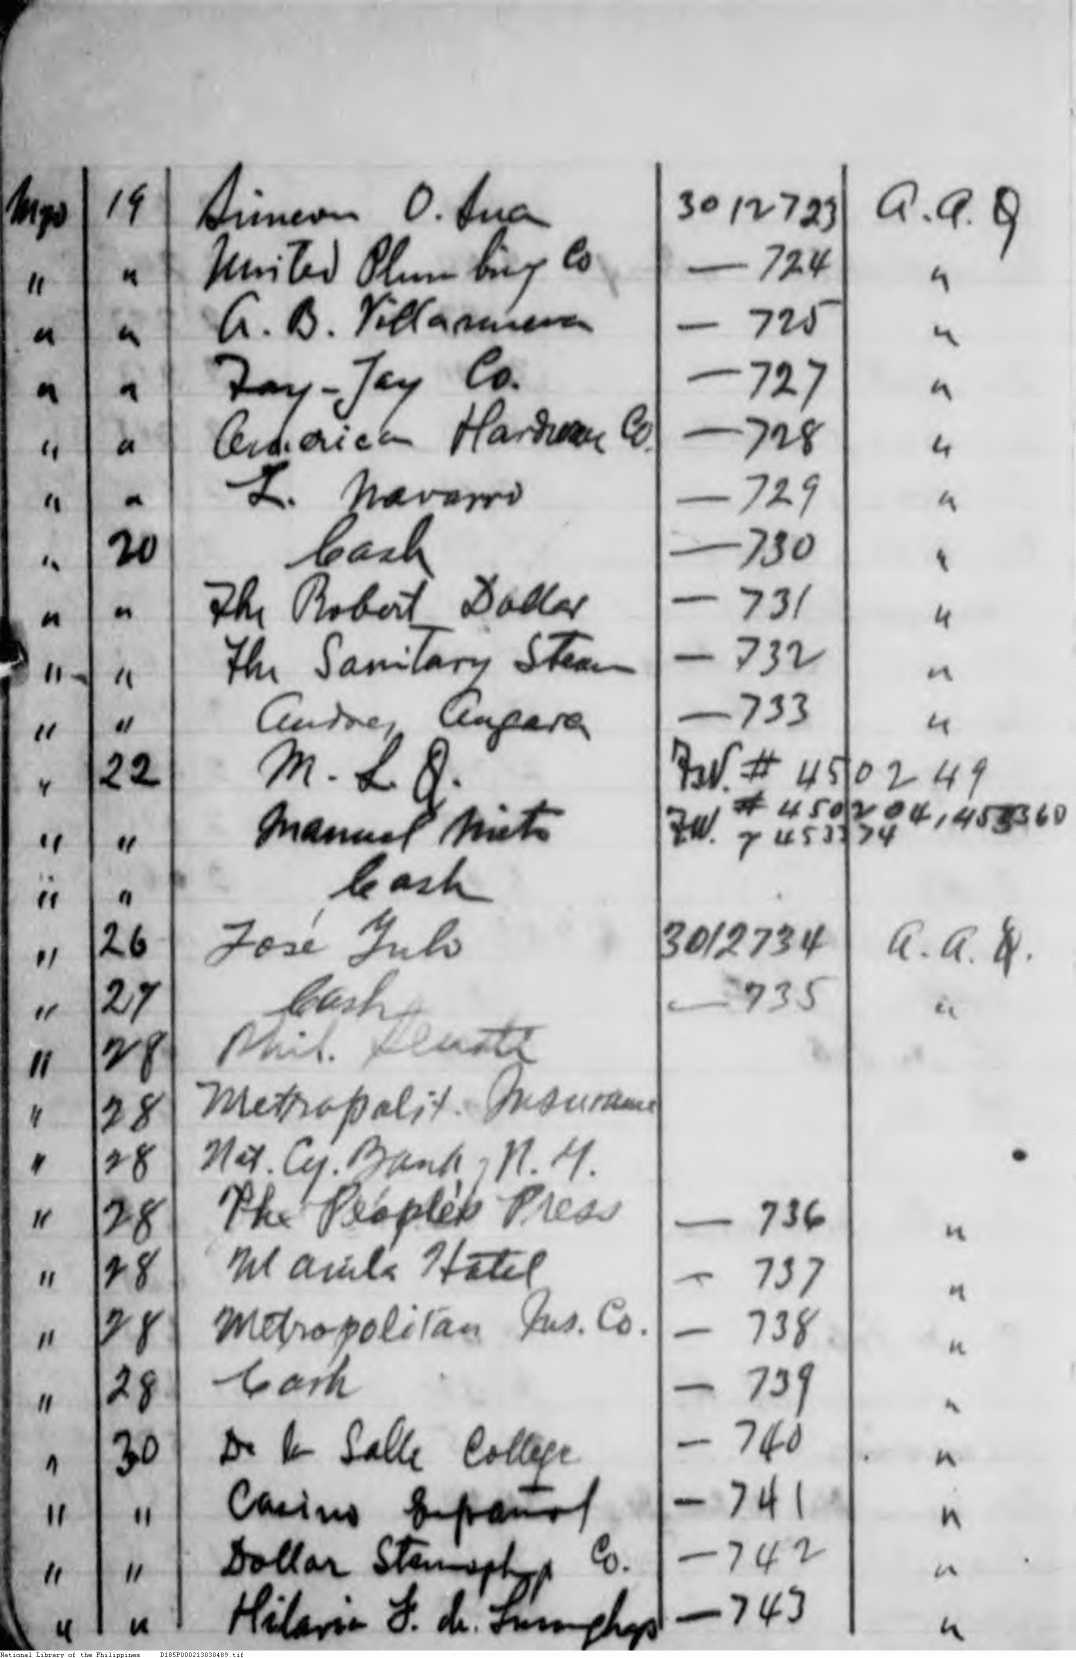 Mzo 19 Simeon O. Lua 3012723 A. A. Q
" " United Plumbing Co — 724 "
" " A. B. Villanueva — 725 "
" " Fay-Jay Co. — 727 "
" " American Hardware Co. — 728 "
" " L. Navarro — 729 "
" 20 Cash — 730 "
" " The Robert Dollar — 731 "
" " The Sanitary Steam — 732 "
" " Andres Angara — 733 "
" 22 M. L. Q. # 450249
" " Manuel Nieto # 450204, 453360
y 453374
" " Cash
" 26 José Yulo 3012734 A. A. Q.
" 27 Cash — 735 "
" 28 Phil. Senate
" 28 Metropolit. Insurance
" 28 Nat. Cy. Bank, N. Y.
" 28 The People's Press — 736 "
" 28 Manila Hotel — 737 "
" 28 Metropolitan Ins. Co. — 738 "
" 28 Cash — 739 "
" 30 De la Salle College — 740 "
" " Casino Español — 741 "
" " Dollar Steamship Co. — 742 "
" " Hilaria F. de — 743 "
National Library of the Philippines D185P000213038409.tif